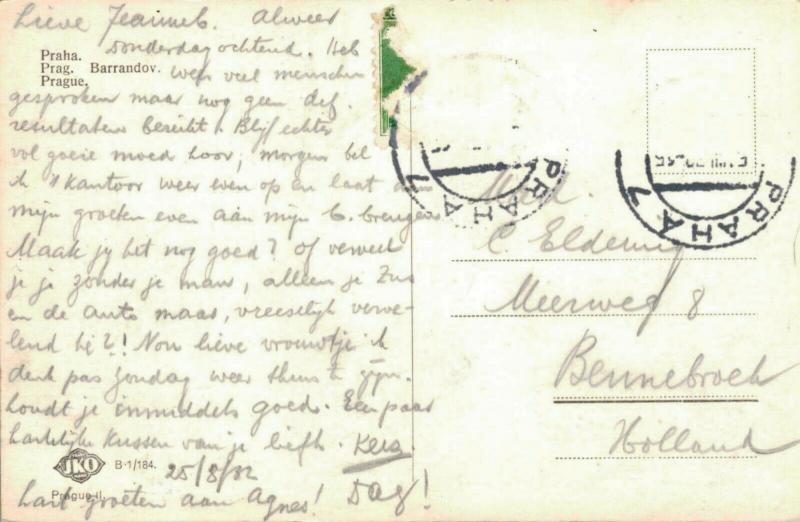 Lieve Jeanneb. Alweer
donderdagochtend. Heb
Praha.
Prag. Barrandov.
Prague.
weer veel menschen
gesproken maar nog geen def.
resultaten bereikt. Blijf echter
vol goeie moed hoor, morgen bel
ik 't kantoor weer even op en laat
mijn groeten even aan mijn brengen
Maak jij het nog goed? of verveel
je je zonder je man, alleen je Zus
en de auto maar, vreeselijk verve-
lend hè?! Nou lieve vrouwtje ik
denk pas Zondag weer thuis te zijn.
houdt je inmiddels goed. Een paar
hartelijke kussen van je liefh. Kees.
JKO
B-1/184.
25/8/32
Prague II.
hart. groeten aan Agnes! Dag!
PRAHA 7
PRAHA 7
C Eldering
Meerweg 8
Bennebroek
Holland